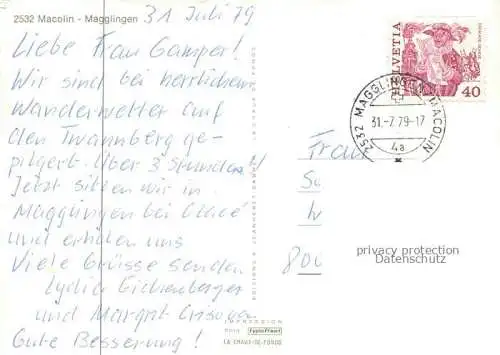 2532 Macolin - Magglingen
31 Juli 79
Liebe Frau Gamper!
Wir sind bei herrlichem
Wanderwetter auf
den Twannberg ge-
pilgert. Über 3 Stunden!
Jetzt sitzen wir in
Magglingen bei Glacé
und erholen uns
Viele Grüsse senden
Lydia Eichenberger
und Margrit
Gute Besserung!
HELVETIA
40
2532 MAGGLINGEN MACOLIN
31.-7.79-17
4a
Frau
800
privacy protection
Datenschutz
IMPRESSION
LA CHAUX-DE-FONDS